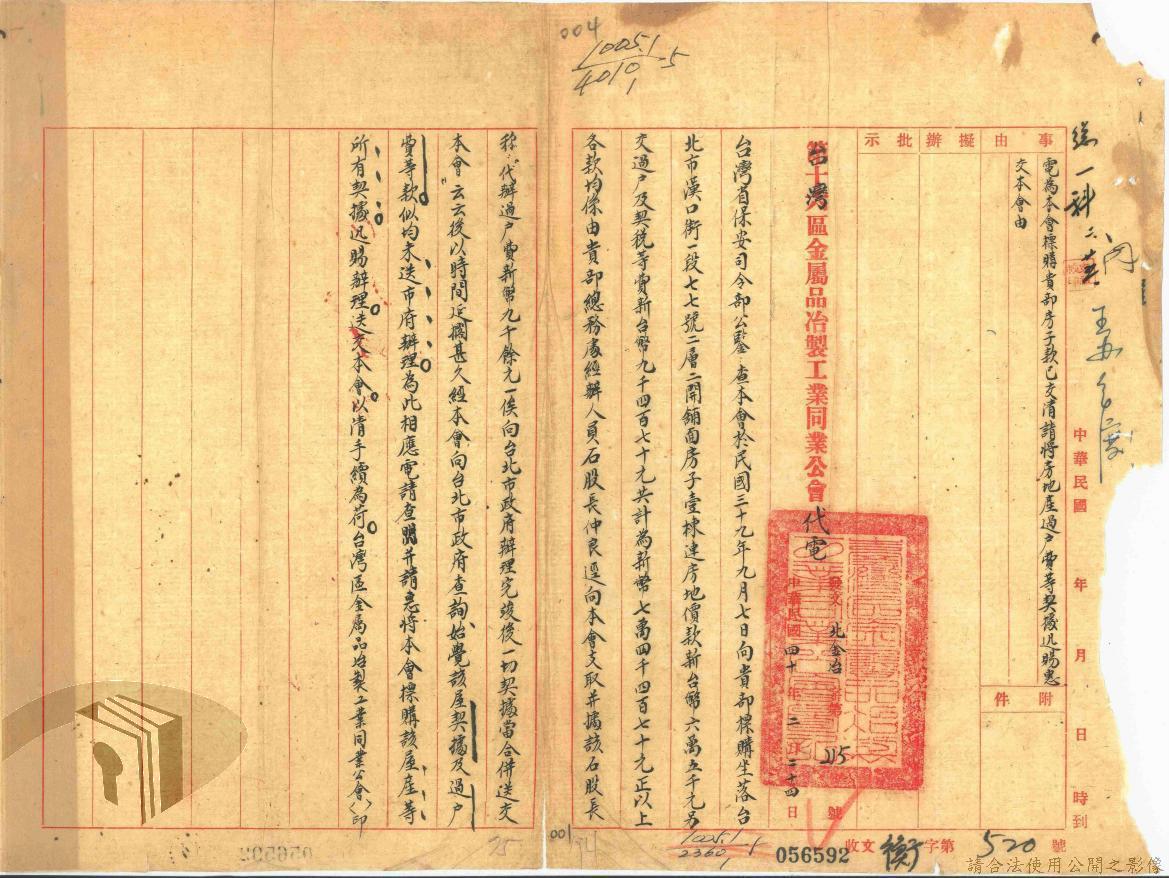 004
1005.1
4010
5
1
總一科
中華民國 年 月 日 時到
事由擬辦批示
電為本會標購貴部房子款已交清請將房地產過戶費等契據迅賜惠
交本會由
附件
台灣區金屬品冶製工業同業公會代電
發文 北金冶 字第 215 號
中華民國四十年二月二十四日
台灣省保安司令部公鑒查本會於民國三十九年九月七日向貴部標購坐落台
北市漢口街一段七七號二層二開鋪面房子壹棟連房地價款新台幣六萬五千元另
交過戶及契稅等費新台幣九千四百七十元共計為新幣七萬四千四百七十元正以上
各款均係由貴部總務處經辦人員石股長仲良逕向本會支取并據該石股長
稱代辦過戶費新幣九千餘元一俟向台北市政府辦理完竣後一切契據當合併送交
本會云云後以時間延擱甚久經本會向台北市政府查詢始覺該屋契據及過戶
費等款似均未送市府辦理為此相應電請查照并請急將本會標購該屋產等
所有契據迅賜辦理送交本會以清手續為荷台灣區金屬品冶製工業同業公會(印
收文 字第 520 號
056592
1005.1
2360
5
1
001
74
75
056592
請合法使用公開之影像